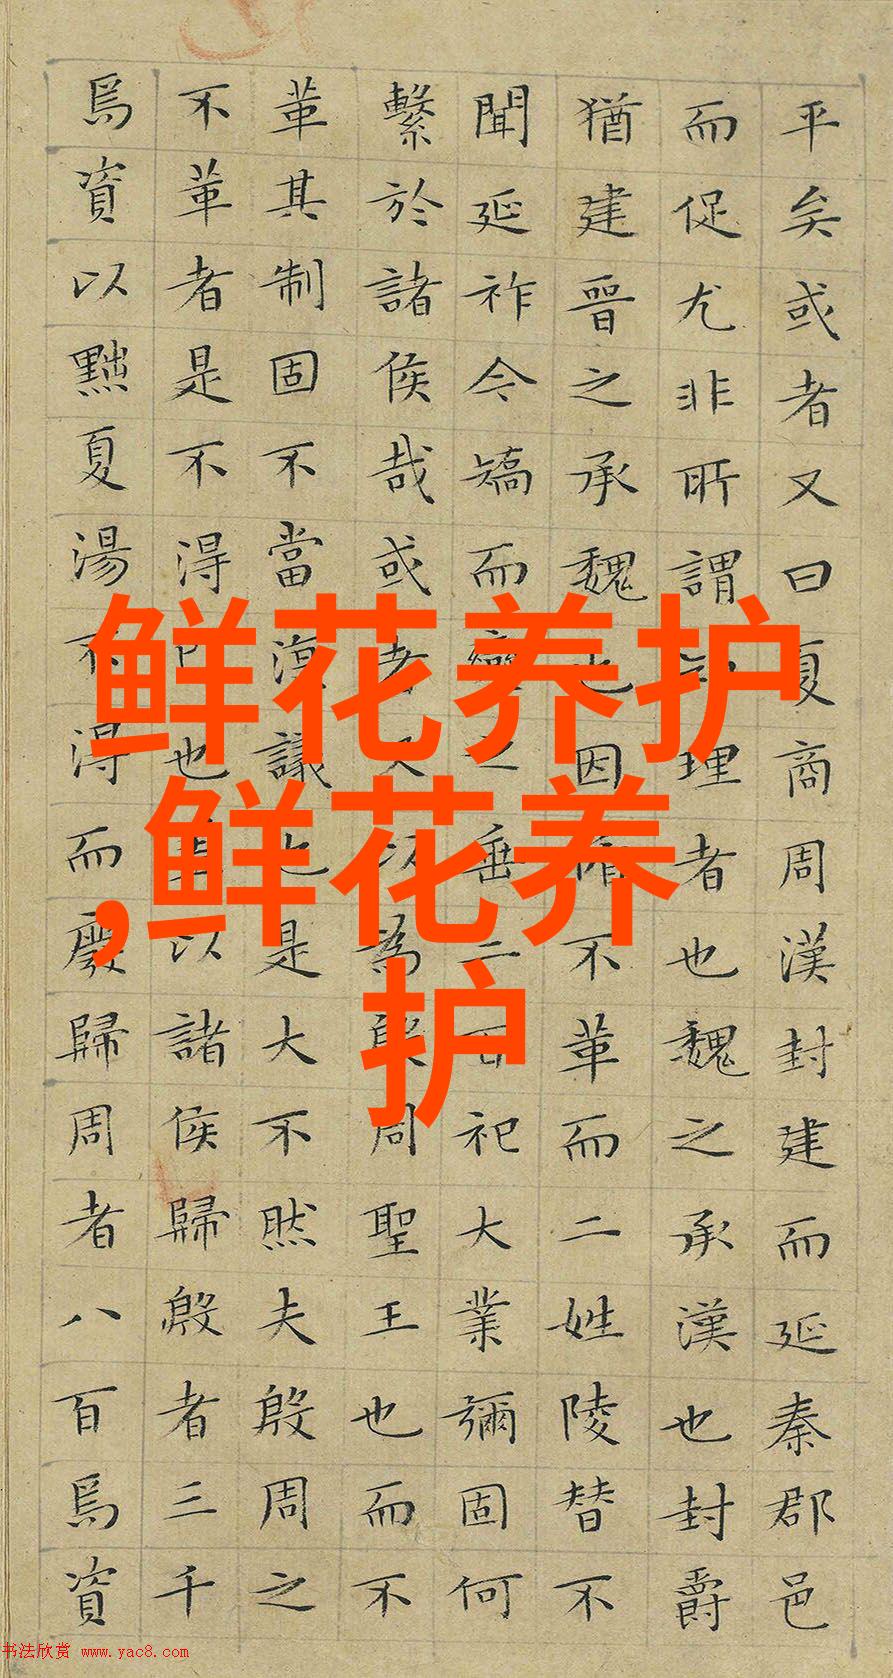 平矣或者又曰夏商周漢封建而延秦郡邑
而促尤非所謂理者也魏之承漢也封爵
猶建晉之承魏也因循不革而二姓陵替不
聞延祚今矯而變之垂二百祀大業彌固何
繫於諸侯哉或者又以為殷周聖王也而不
革其制固不當復議也是大不然夫殷周之
不革者是不得已也蓋以諸侯歸殷者三千
焉資以黜夏湯不得而廢歸周者八百焉資
鲜花养护
,鲜花养
护
书法欣赏 www.yac8.com